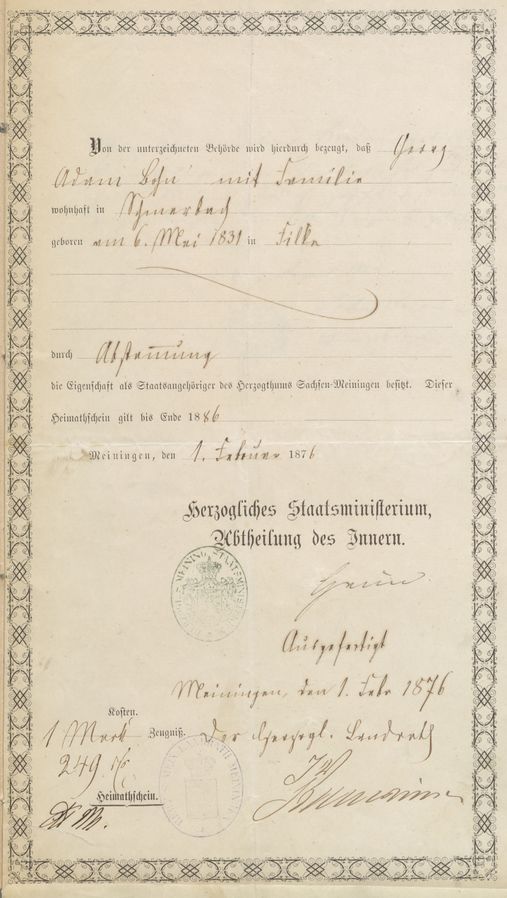 Von der unterzeichneten Behörde wird hierdurch bezeugt, daß Georg
Adam Bohn mit Familie
wohnhaft in Schmerbach
geboren am 6. Mai 1831 in Filke
durch Abstammung
die Eigenschaft als Staatsangehöriger des Herzogthums Sachsen-Meiningen besitzt. Dieser
Heimathschein gilt bis Ende 1886
Meiningen, den 1. Februar 1876
Herzogliches Staatsministerium,
Abtheilung des Innern.
Ausgefertigt
Meiningen, den 1. Febr 1876
Kosten.
1 Mark Zeugniß. Der Herzogl. Landrath
249.
Heimathschein.